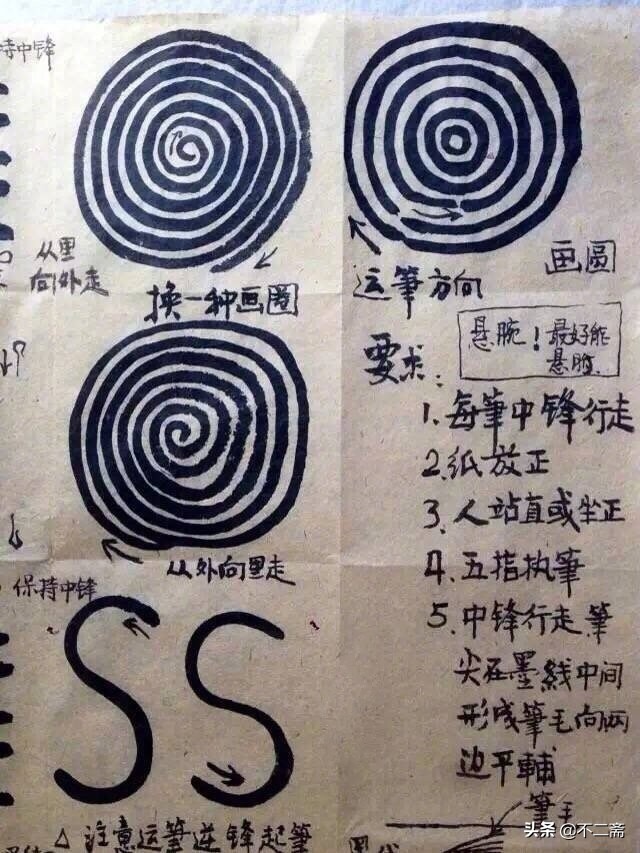 持中锋
从里
向外走
换一种画圈
运筆方向
画圓
悬腕！最好能
悬肘
要求：
1. 每筆中锋行走
2. 纸放正
3. 人站直或坐正
4. 五指执筆
5. 中锋行走筆
尖在墨线中间
形成筆毛向两
边平輔
从外向里走
保持中锋
SS
△ 注意运筆逆锋起筆
筆毛
头条 @不二斋